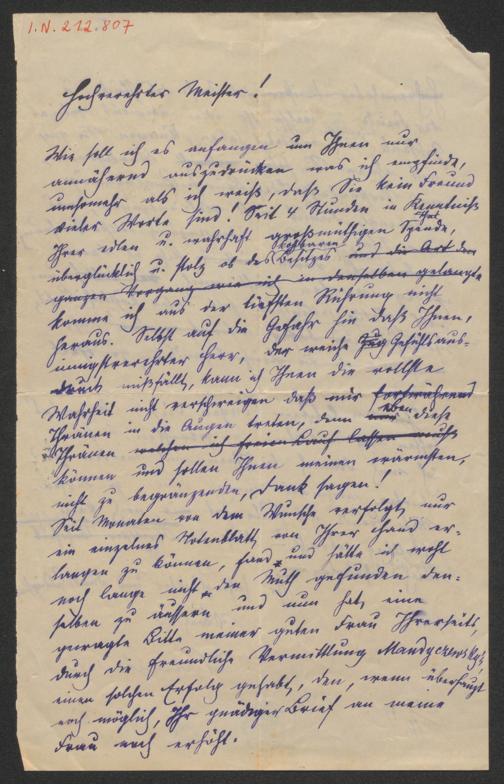 I.N. 212.807
Hochverehrter Meister!
Wie soll ich es anfangen um Ihnen nur
annähernd auszudrücken was ich empfinde,
umsomehr als ich weiß, daß Sie kein Freund
vieler Worte sind! Seit 4 Stunden in Kenntniß
Ihrer edlen u. wahrhaft großmüthigen Spende,
überglücklich u. stolz ob des kostbaren Besitzes und die Art den
ganzen Vorgang wie ich in denselben gelangte
komme ich aus der tiefsten Rührung nicht
heraus. Selbst auf die Gefahr hin daß Ihnen,
innigstverehrter Herr, der weiche Gefühlsaus-
druck mißfällt, kann ich Ihnen die vollste
Wahrheit nicht verschweigen daß mir fortwährend
Thränen in die Augen treten, denn eben diese
Thränen welchen ich freien Lauf lassen muß
können und sollen Ihnen meinen wärmsten,
nicht zu begränzenden, Dank sagen!
Seit Monaten von dem Wunsche verfolgt, nur
ein einzelnes Notenblatt von Ihrer Hand er-
langen zu können, fand und hätte ich wohl
noch lange nicht den Muth gefunden den-
selben zu äussern und nun hat eine
gewagte Bitte meiner guten Frau Ihrerseits,
durch die freundliche Vermittlung Mandyczewskys,
einen solchen Erfolg gehabt, den, wenn überhaupt
noch möglich, Ihr gnädiger Brief an meine
Frau noch erhöht.